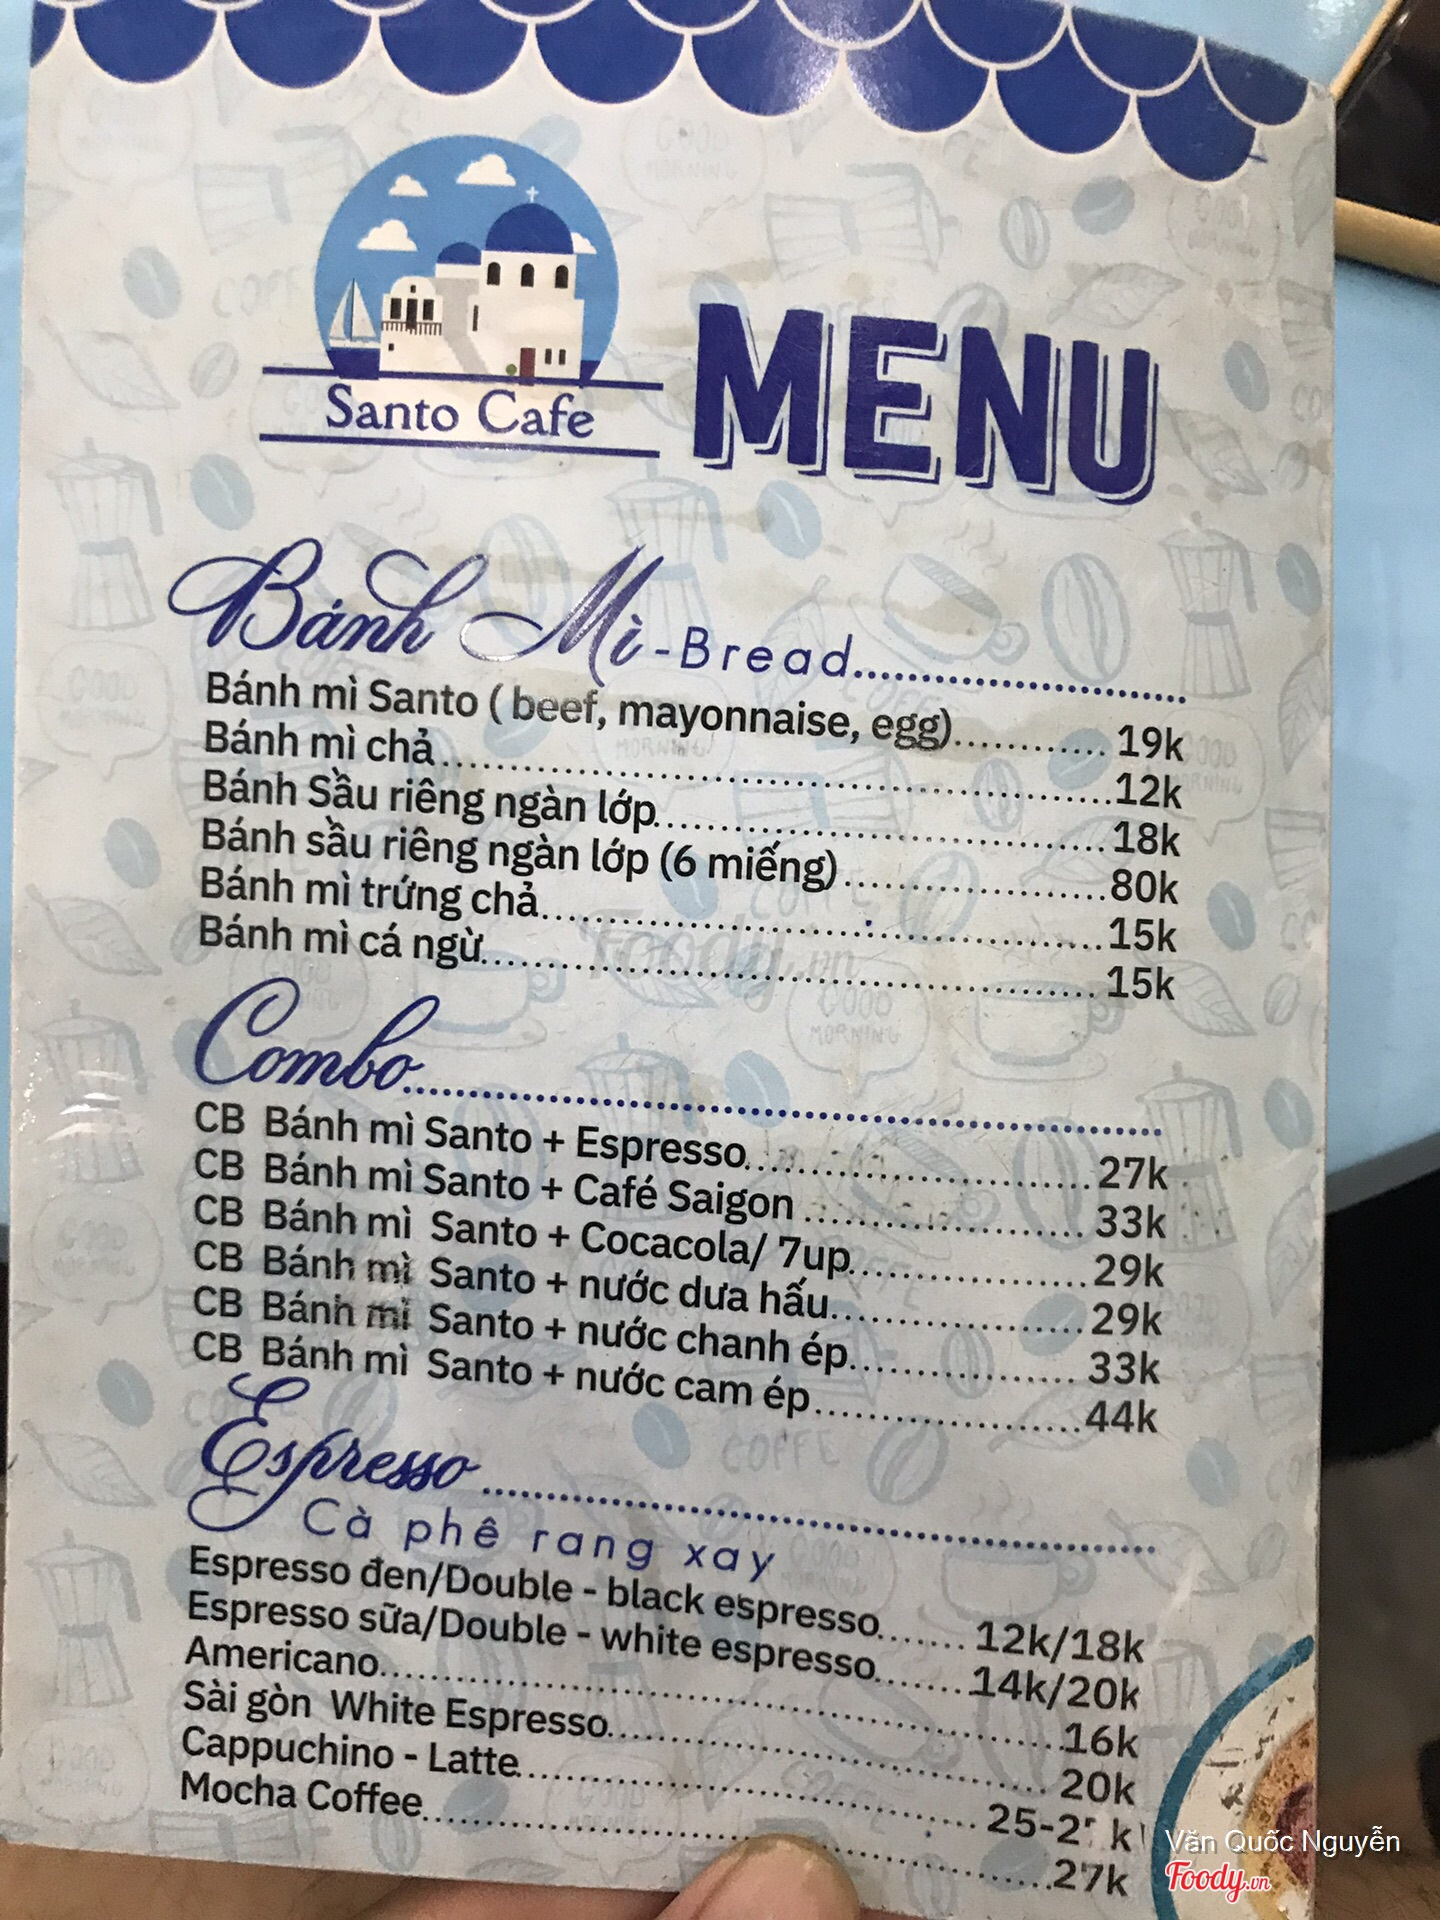 Santo Cafe
MENU
Bánh Mì - Bread
Bánh mì Santo ( beef, mayonnaise, egg) 19k
Bánh mì chả 12k
Bánh Sầu riêng ngàn lớp 18k
Bánh sầu riêng ngàn lớp (6 miếng) 80k
Bánh mì trứng chả 15k
Bánh mì cá ngừ 15k
Combo
CB Bánh mì Santo + Espresso 27k
CB Bánh mì Santo + Café Saigon 33k
CB Bánh mì Santo + Cocacola/ 7up 29k
CB Bánh mì Santo + nước dưa hấu 29k
CB Bánh mì Santo + nước chanh ép 33k
CB Bánh mì Santo + nước cam ép 44k
Espresso
Cà phê rang xay
Espresso đen/Double - black espresso 12k/18k
Espresso sữa/Double - white espresso 14k/20k
Americano 16k
Sài gòn White Espresso 20k
Cappuchino - Latte
Mocha Coffee 27k
Văn Quốc Nguyễn
Foody.vn